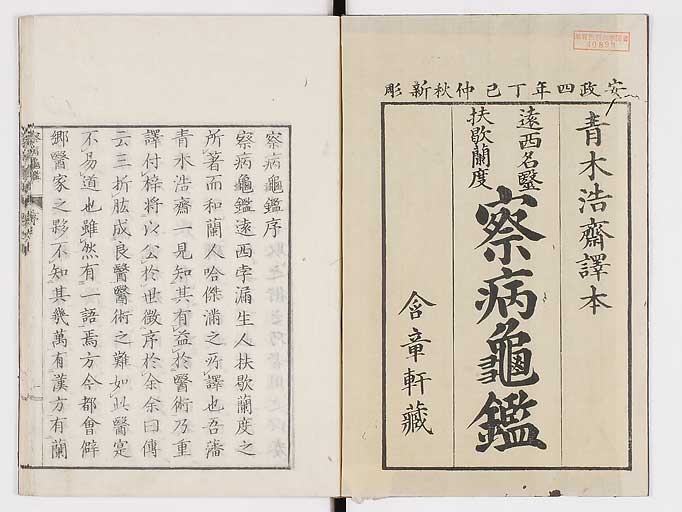 安政四年丁巳仲秋新彫
青木浩齋譯本
遠西名毉
扶歇蘭度
察病龜鑑
含章軒藏
察病龜鑑序
察病龜鑑遠西孛漏生人扶歇蘭度之
所著而和蘭人哈傑滿之所譯也吾藩
青木浩齋一見知其有益於醫術乃重
譯付梓將以公於世徵序於余余曰傳
云三折肱成良醫醫術之難如此醫寔
不易道也雖然有一語焉方今都會僻
鄉醫家之夥不知其幾萬有漢方有蘭